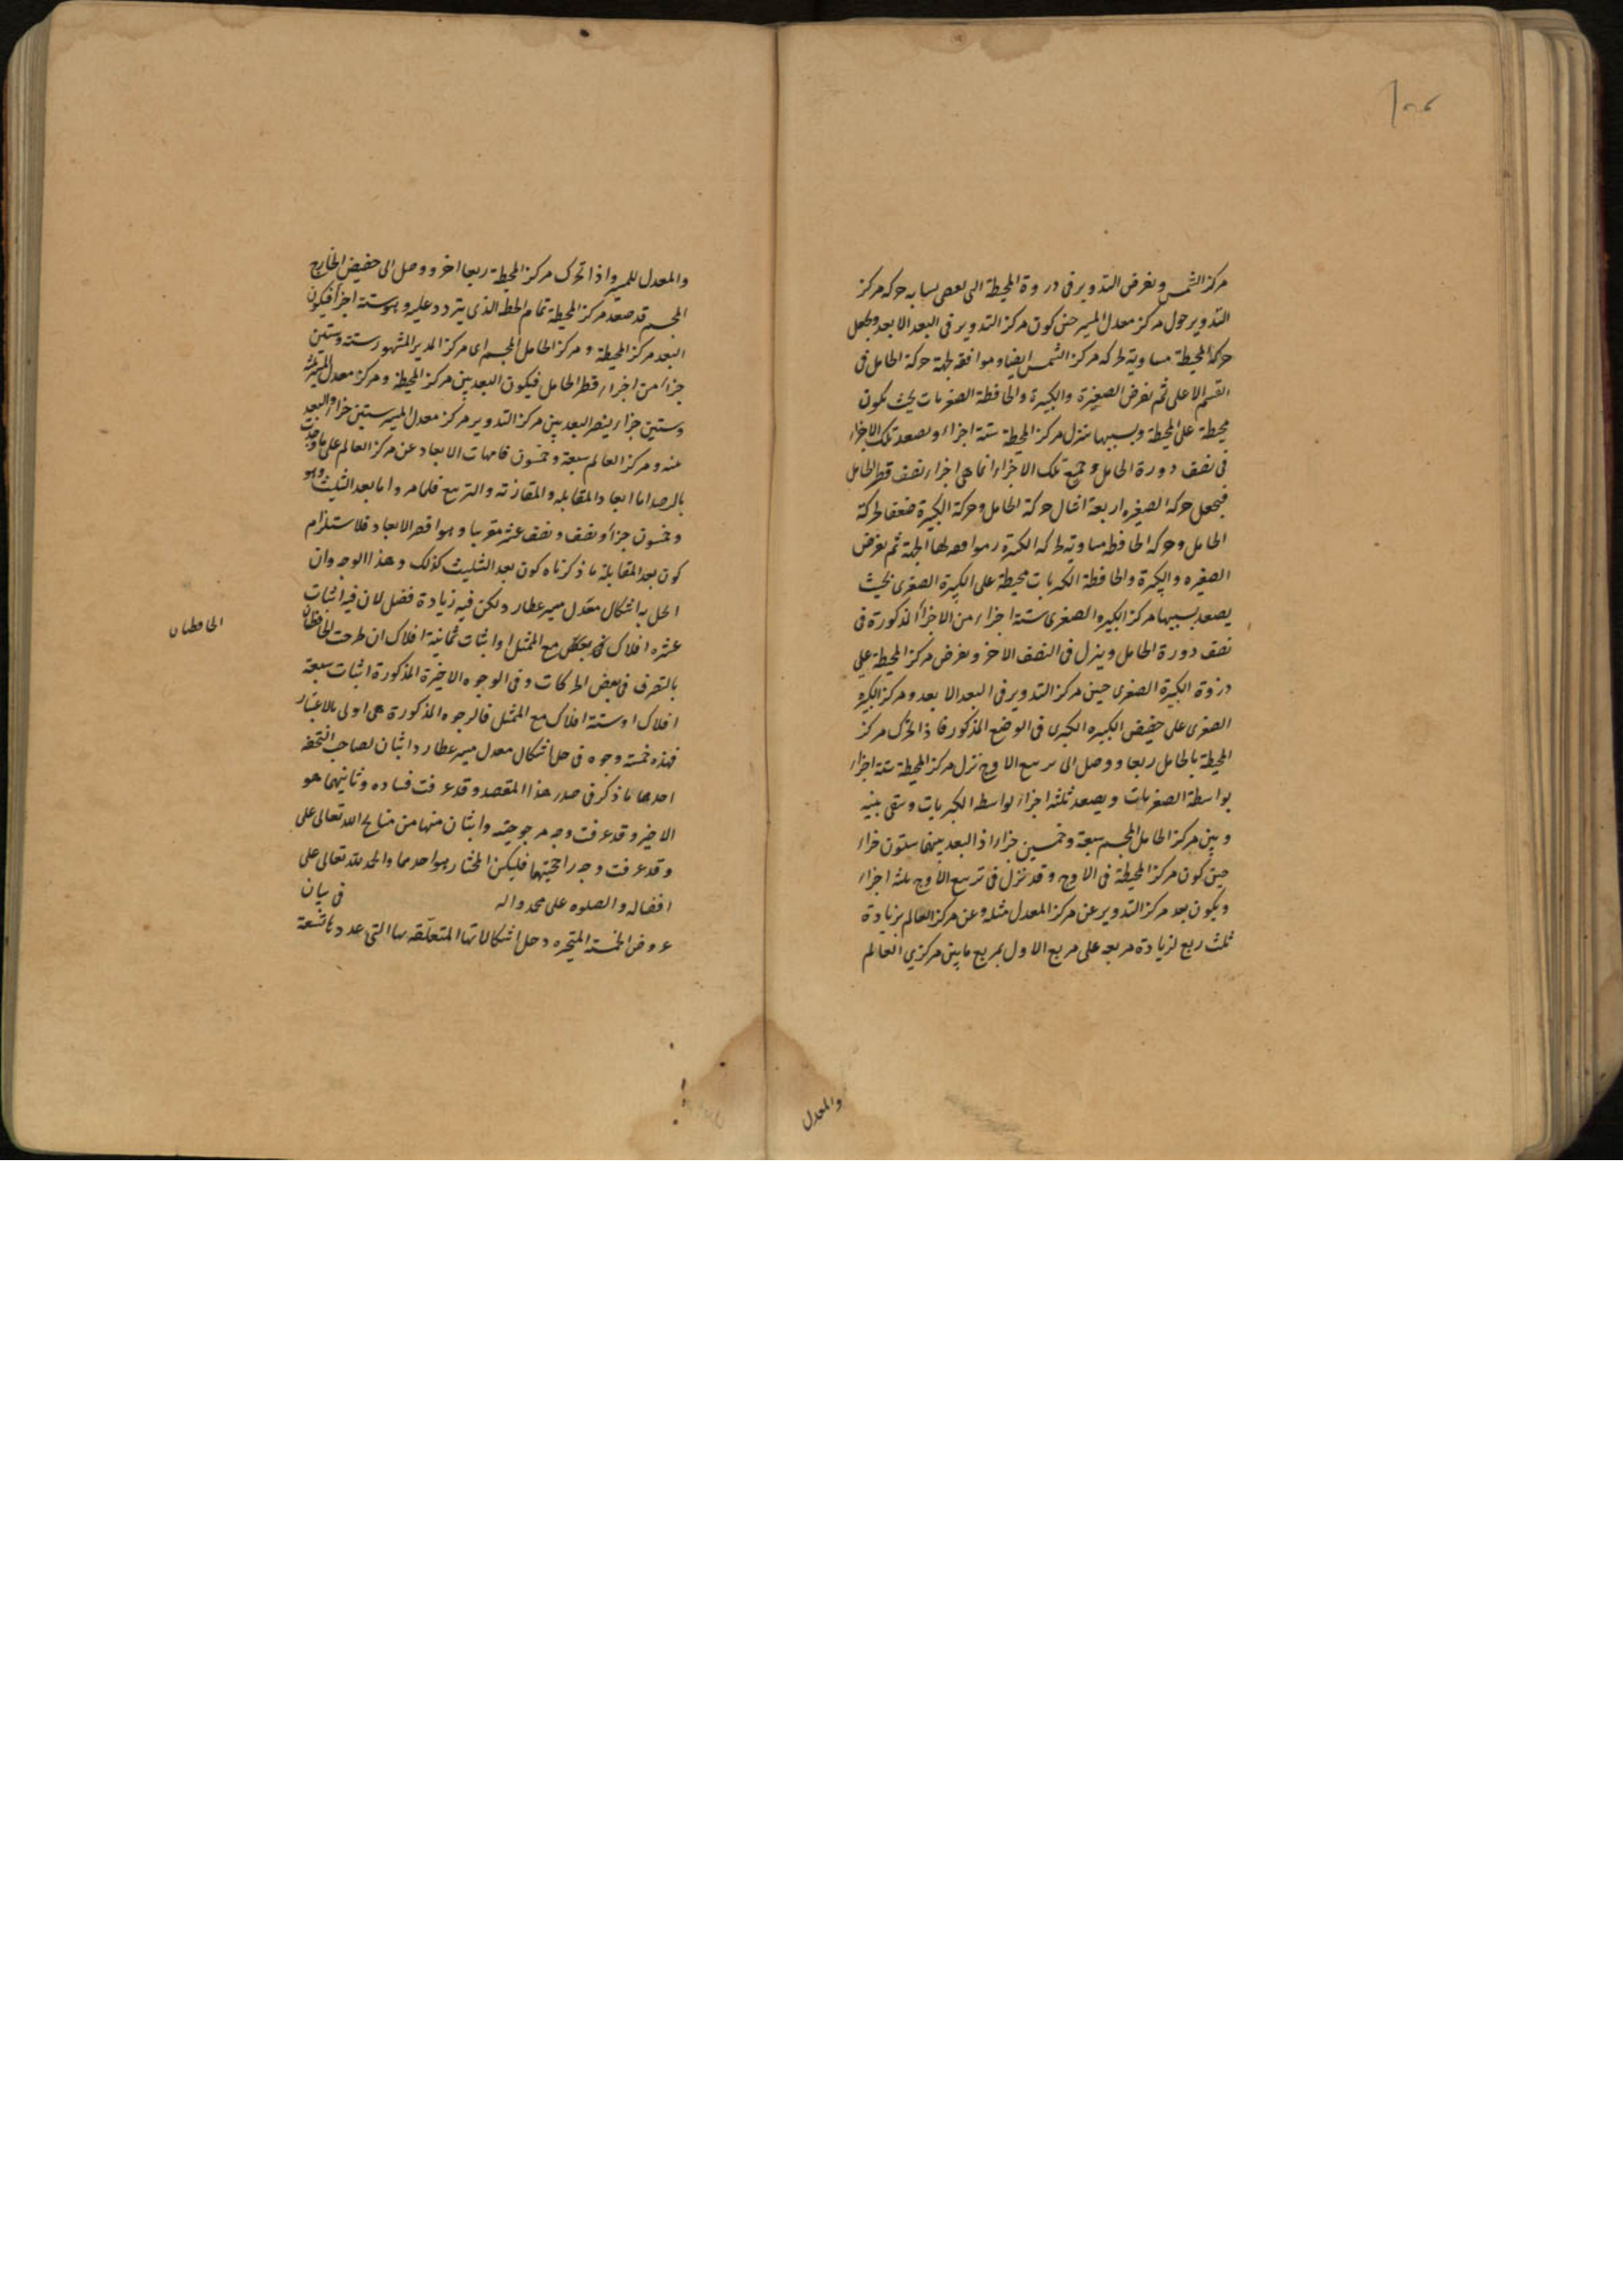 مركز الشمس ونفرض التدوير فى ذروة المحيطة التى تشابه حركه مركز
التدوير حول مركز معدل المسير حين كون مركز التدوير فى البعد الابعد ونجعل
حركة المحيطة مساوية لحركه مركز الشمس ايضا وموافقه لجهة حركة الحامل فى
القسم الاعلى ثم نفرض الصغيرة والكبيرة والحافظة الصغريات بحيث تكون
محيطة على المحيطة وبسببها ينزل مركز المحيطة ستة اجزاء ويصعد تلك الاجزاء
فى نصف دورة الحامل وجميع تلك الاجزاء انما هى اجزاء نصف قطر الحامل
فيجعل حركة الصغيره اربعة امثال حركة الحامل وحركة الكبيرة ضعف لحركة
الحامل وحركه الحافظه مساوية لحركه الكبيرة موافقه لها الجهة ثم نفرض
الصغيره والكبيرة والحافظة الكبريات محيطة على الكبيرة الصغرى بحيث
يصعد بسببها مركز الكبيره الصغرى ستة اجزاء من الاجزأ المذكورة فى
نصف دورة الحامل وينزل فى النصف الاخر ونفرض مركز المحيطة على
ذروة الكبيرة الصغرى حين مركز التدوير فى البعد الابعد ومركز الكبيره
الصغرى على حضيض الكبيره الكبرى فى الوضع المذكور فاذا تحرك مركز
المحيطة بالحامل ربعا ووصل الى تربيع الاوج نزل مركز المحيطة ستة اجزاء
بواسطة الصغريات ويصعد ثلثه اجزاء بواسطه الكبريات وبقى بينه
وبين مركز الحامل المجسم سبعة وخمسين جزاء اذ البعد بينهما ستون جزاء
حين كون مركز المحيطة فى الاوج وقد نزل فى تربيع الاوج ثلثه اجزاء
ويكون بعد مركز التدوير عن مركز المعدل مثله وعن مركز العالم بزيادة
ثلث ربع لزيادة مربعه على مربع الاول بمربع ما بين مركزي العالم
والمعدل
والمعدل للمسير واذا تحرك مركز المحيطة ربعا اخر ووصل الى حضيض الخارج
المجسم قد صعد مركز المحيطة تمام الخط الذى يتردد عليه وهو ستة اجزأ فيكون
البعد مركز المحيطة ومركز الحامل المجسم اى مركز المدير المشهور ستة وستين
جزاء من اجزاء قطر الحامل فيكون البعد بين مركز المحيطة ومركز معدل المسير ثلثة
وستين جزاء البعد بين مركز التدوير مركز معدل المسير ستين جزاء والبعد
منه ومركز العالم سبعة وخمسون فامهات الابعاد عن مركز العالم على ما وجدت
بالرصد اما ابعاد المقابله والمقارنة والتربيع فلما مر واما بعد التثليث وهو
وخمسون جزأ ونصف ونصف عشر تقريبا وهو اقصر الابعاد فلاستلزام
كون بعد المقابلة ما ذكرناه كون بعد التثليث كذلك وهذا الوجه وان
انحل به اشكال معدل مسير عطارد ولكن فيه زيادة فضل لان فيه اثبات
عشره افلاك مع الممثل او اثبات ثمانية افلاك ان طرحت الحافظتان
الحافظتان
بالتصرف فى بعض الحركات وفى الوجوه الاخيرة المذكورة اثبات سبعة
افلاك او ستة افلاك مع الممثل فالوجوه المذكورة هى اولى بالاعتبار
فهذه خمسة وجوه فى حل اشكال معدل مسير عطارد اثنان لصاحب التحفه
احدها ما ذكر فى صدر هذا المقصد وقد عرفت فساده وثانيهما هو
الاخير وقد عرفت وجه مرجوحيته واثنان منها من منايح الله تعالى على
وقد عرفت وجه راجحيتهما فليكن المختار هو احدهما والحمد لله تعالى على
افضاله والصلوه على محمد واله في بيان
عروض الخمسة المتحيره وحل اشكالاتها المتعلقه بها التى عددها تسعة